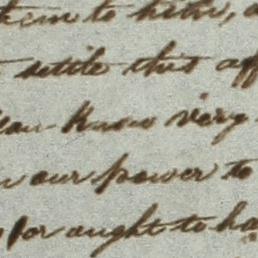 them to him, a
settle this aff
can know very
our power to
for aught to ha